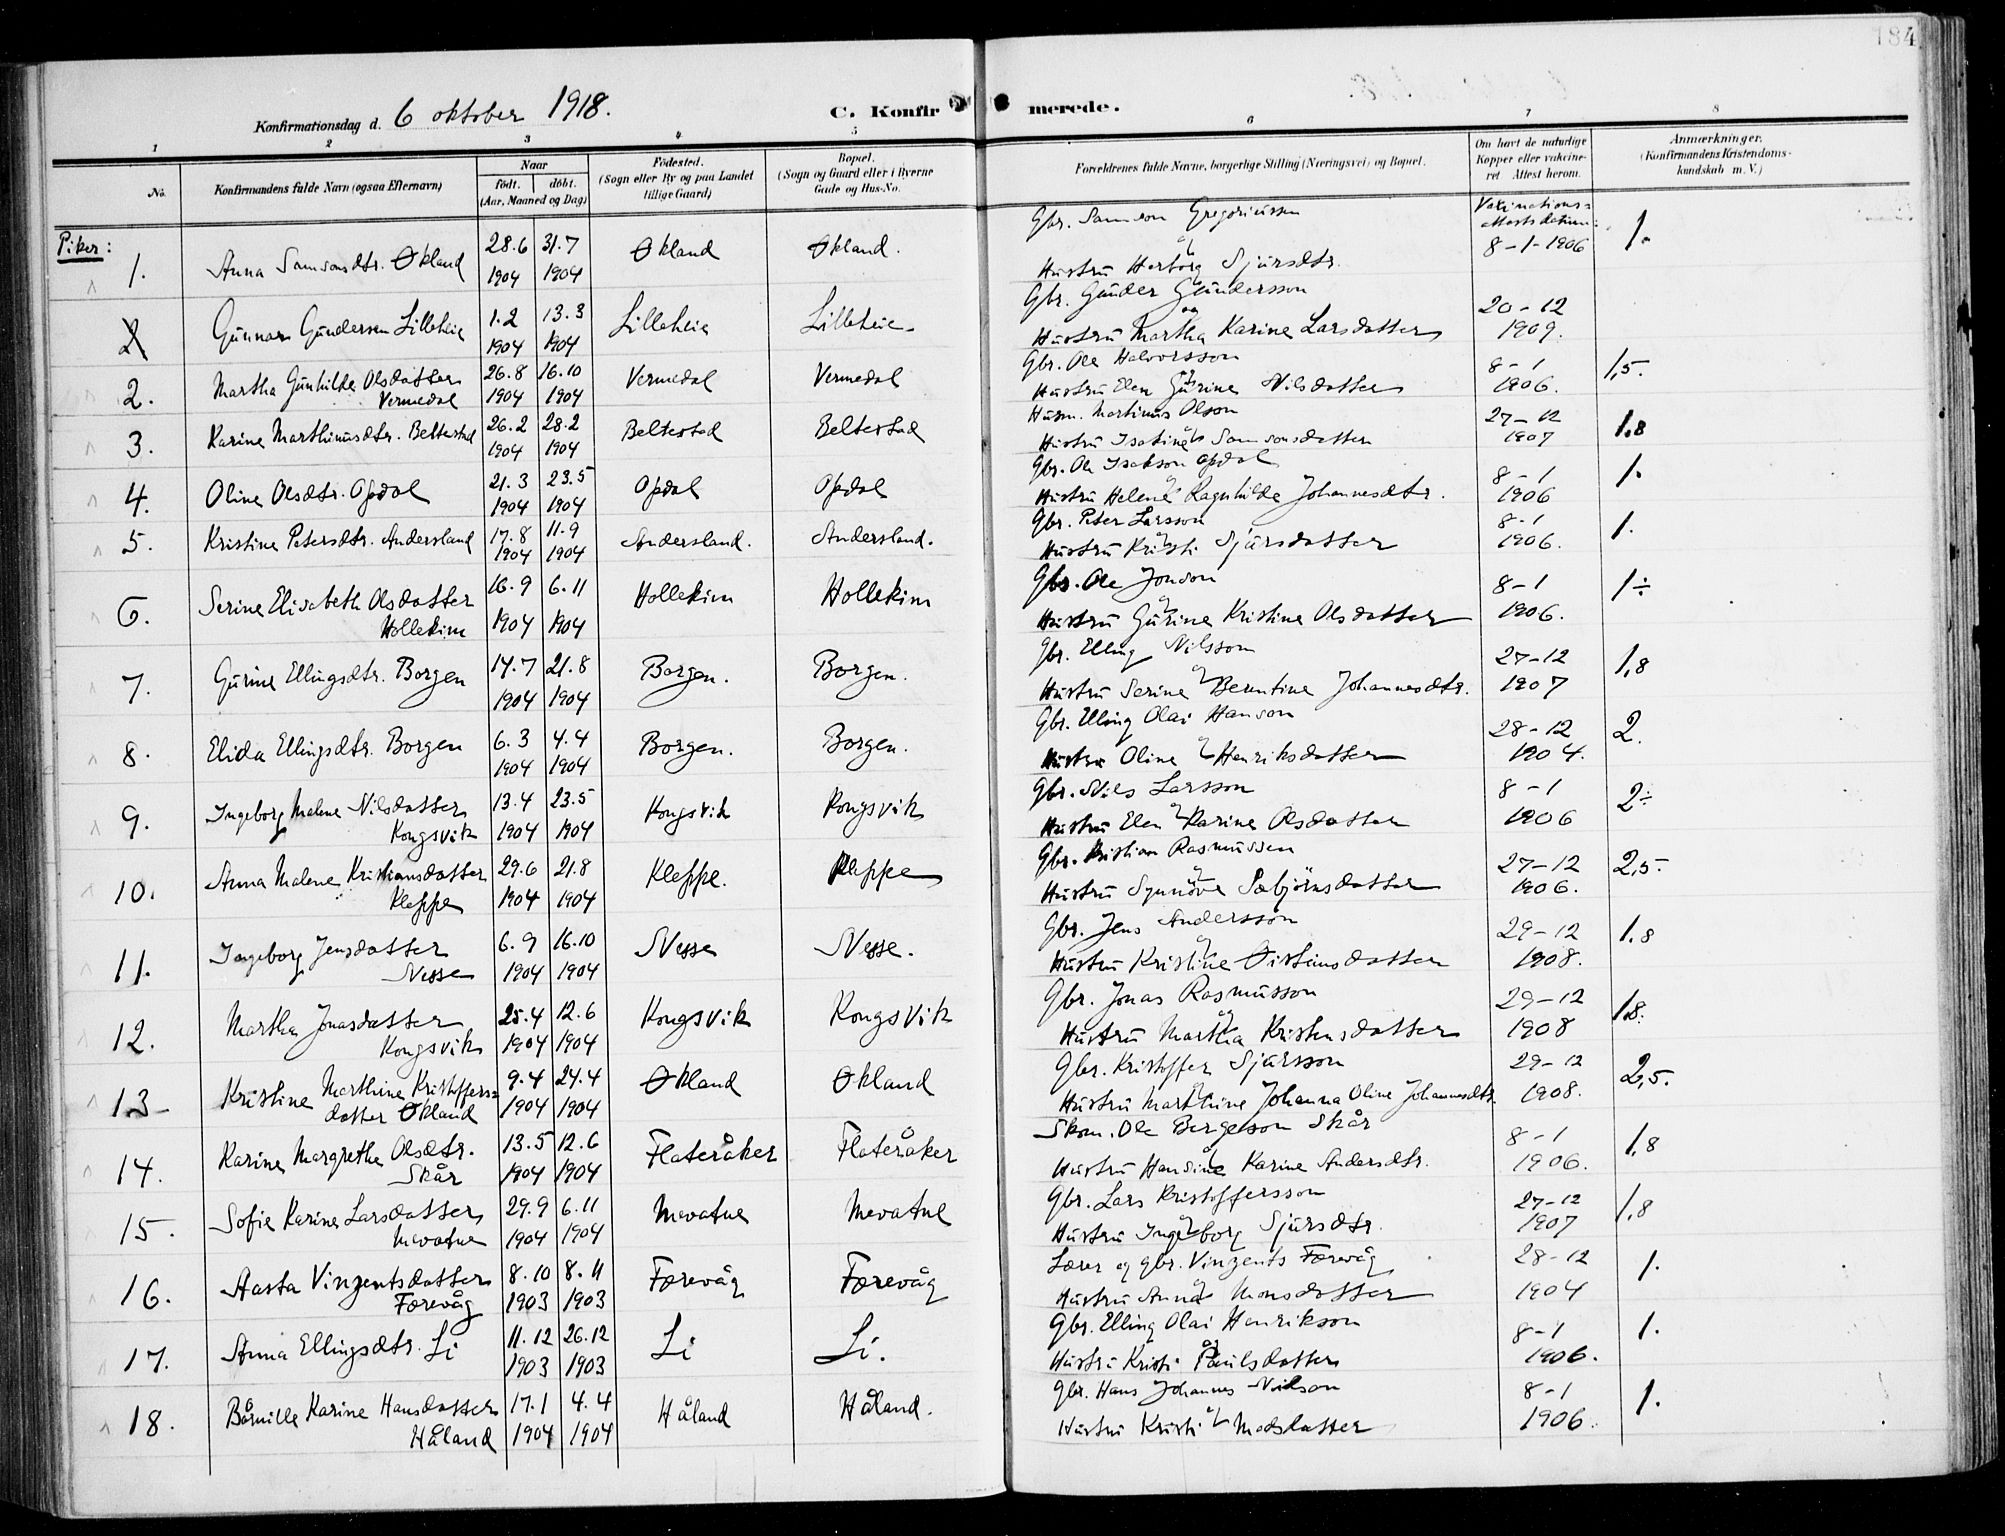 184
Konfirmationsdag d. 6 oktober 1918.
C. Konfirmerede.
1 2 3 4 5 6 7 8
No.
Konfirmandens fulde Navn (ogsaa Efternavn)
Naar
født. døbt.
(Aar, Maaned og Dag)
Fødested.
(Sogn eller By og paa Landet
tillige Gaard)
Bopæl.
(Sogn og Gaard eller i Byerne
Gade og Hus-No.
Forældrenes fulde Navne, borgerlige Stilling (Næringsvei) og Bopæl.
Om havt de naturlige
Kopper eller vakcine-
ret Attest herom.
Anmærkninger.
(Konfirmandens Kristendoms-
kundskab m. V.)
Piker:
Vaxinations=
attests datum:
1. Anna Samsonsdtr. Økland 28.6 1904 31.7 1904 Økland Økland. Gbr. Samson Gregoriussen
og Hustru Herborg Sjursdtr. 8-1-1906 1.
2 Gunnar Gundersen Lilleheie 1.2 1904 13.3 1904 Lilleheie Lilleheie. Gbr. Gunder Gundersson
og Hustru Martha Karine Larsdatter 20-12 1909.
2. Martha Gunhilde Olsdatter
Vermedal 26.8 1904 16.10 1904 Vermedal Vermedal Gbr. Ole Halvorsson
og Hustru Elen Gurine Nilsdatter 8-1 1906. 1,5.
3. Karine Marthinusdtr. Beltestad 26.2 1904 28.2 1904 Beltestad Beltestad Husm. Martinus Olson
og Hustru Isatine Samsonsdatter 27-12 1907 1.8
4. Oline Olsdtr. Opdal 21.3 1904 23.5 1904 Opdal Opdal Gbr. Ole Isakson Opdal
og Hustru Helene Ragnhilde Johannesdtr. 8-1 1906 1.
5. Kristine Petersdtr. Andersland 17.8 1904 11.9 1904 Andersland. Andersland. Gbr. Peter Larsson
og Hustru Kristi Sjursdatter 8-1 1906. 1.
6. Serine Elisabeth Olsdatter
Hollekim 16.9 1904 6.11 1904 Hollekim Hollekim Gbr. Ole Jonson
og Hustru Gurine Kristine Olsdatter 8-1 1906. 1÷
7. Gurine Ellingsdtr. Borgen 14.7 1904 21.8 1904 Borgen. Borgen. Gbr. Elling Nilsson
og Hustru Serine Berentine Johannesdtr. 27-12 1907 1,8
8. Elida Ellingsdtr. Borgen 6.3 1904 4.4 1904 Borgen. Borgen. Gbr. Elling Olai Hanson
og Hustru Oline Henriksdatter 28-12 1904. 2.
9. Ingeborg Malene Nilsdatter
Kongsvik 13.4 1904 23.5 1904 Kongsvik Kongsvik Gbr. Nils Larsson
og Hustru Elen Karine Olsdatter 8-1 1906 2÷
10. Anna Malene Kristiansdatter
Kleppe 29.6 1904 21.8 1904 Kleppe. Kleppe Gbr. Kristian Rasmussen
og Hustru Synnøve Sæbjørnsdatter 27-12 1906. 2,5.
11. Ingeborg Jensdatter
Nesse 6.9 1904 16.10 1904 Nesse Nesse. Gbr. Jens Andersson
og Hustru Kristine Øisteinsdatter 29-12 1908. 1.8
12. Martha Jonasdatter
Kongsvik 25.4 1904 12.6 1904 Kongsvik Kongsvik Gbr. Jonas Rasmusson
og Hustru Martha Kristensdatter 29-12 1908 1.8.
13- Kristine Marthine Kristoffers=
datter Økland 9.4 1904 24.4 1904 Økland Økland Gbr. Kristoffer Sjursson
og Hustru Marthine Johanna Oline Johannesdtr. 29-12 1908. 2,5.
14. Karine Margrethe Olsdtr.
Skår 13.5 1904 12.6 1904 Flateråker Flateråker Skom. Ole Bergeson Skår
og Hustru Hansine Karine Andersdtr. 8-1 1906. 1,8
15. Sofie Karine Larsdatter
Mevatne 29.9 1904 6.11 1904 Mevatne Mevatne Gbr. Lars Kristoffersson
og Hustru Ingeborg Sjursdtr. 27-12 1907 1,8
16. Aasta Vinzentsdatter
Færevåg 8.10 1903 8.11 1903 Færevåg Færevåg Lærer og gbr. Vinzents Færevåg
og Hustru Anna Monsdatter 28-12 1904 1.
17. Anna Ellingsdtr. Li 11.12 1903 26.12 1903 Li Li. Gbr. Elling Olai Henrikson
og Hustru Kristi Paulsdatter 8-1 1906. 1.
18. Bårnille Karine Hansdatter
Håland 17.1 1904 4.4 1904 Håland Håland. Gbr. Hans Johannes Nilson
og Hustru Kristi Madsdatter 8-1 1906. 1.